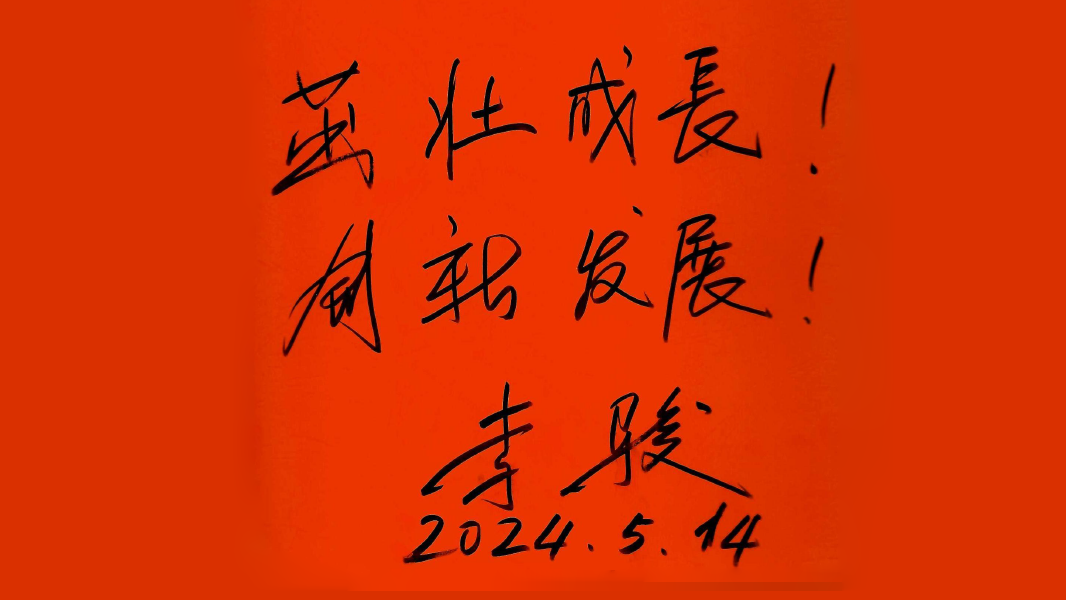 茁壮成長！
创新发展！
李骏
2024.5.14